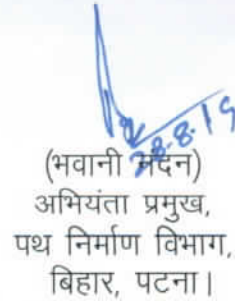 28.8.19
(भवानी नंदन)
अभियंता प्रमुख,
पथ निर्माण विभाग,
बिहार, पटना।